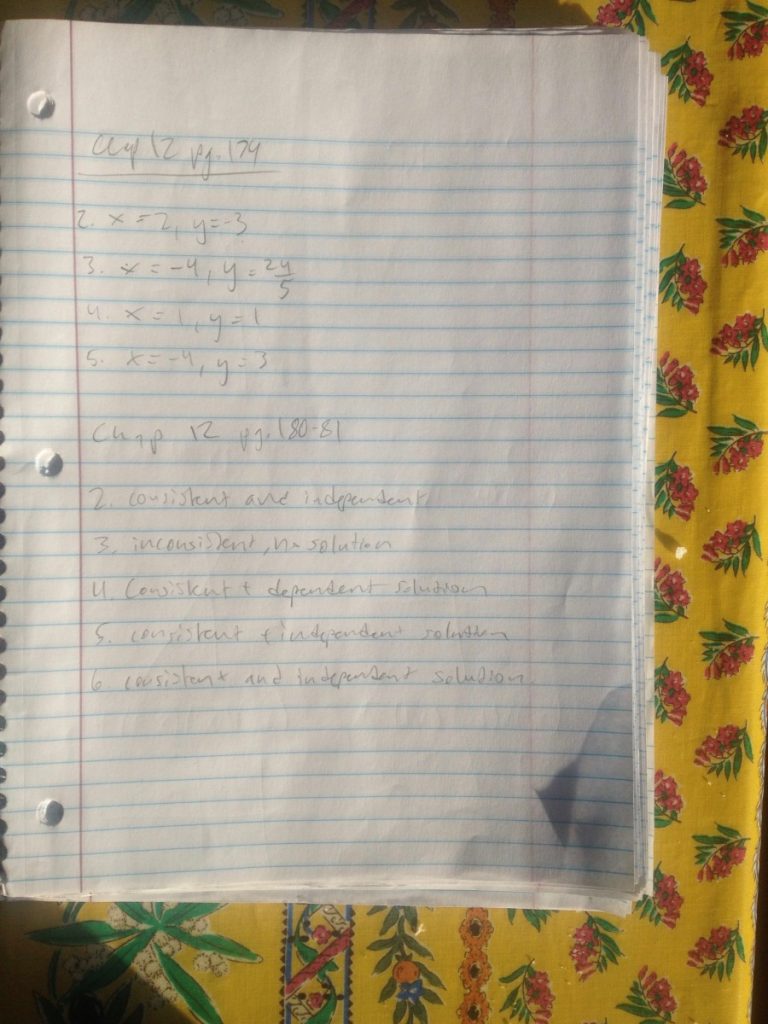 Chap 12 pg. 179
2. x = 2, y = -3
3. x = -4, y = 24/5
4. x = 1, y = 1
5. x = -4, y = 3
Chap 12 pg. 180-81
2. consistent and independent
3. inconsistent, no solution
4. Consistent + dependent solution
5. consistent + independent solution
6. consistent and independent solution